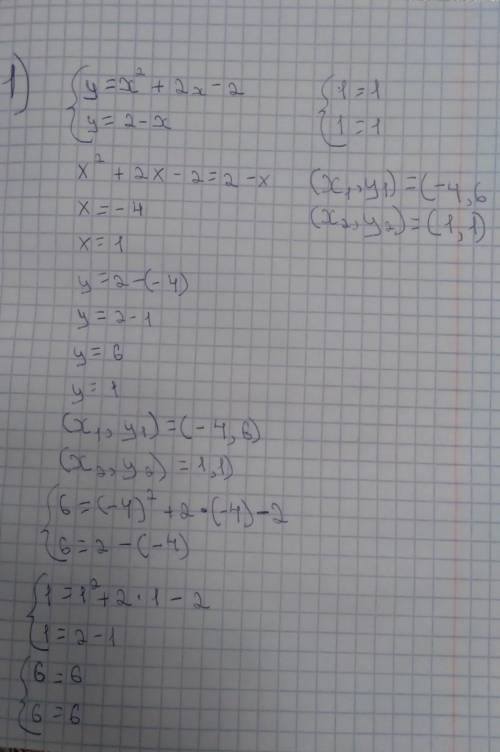 1)
{y = x² + 2x - 2
{y = 2 - x
x² + 2x - 2 = 2 - x
x = -4
x = 1
y = 2 - (-4)
y = 2 - 1
y = 6
y = 1
(x₁, y₁) = (-4, 6)
(x₂, y₂) = 1, 1)
{6 = (-4)² + 2 · (-4) - 2
{6 = 2 - (-4)
{1 = 1² + 2 · 1 - 2
{1 = 2 - 1
{6 = 6
{6 = 6
{1 = 1
{1 = 1
(x₁, y₁) = (-4, 6
(x₂, y₂) = (1, 1)